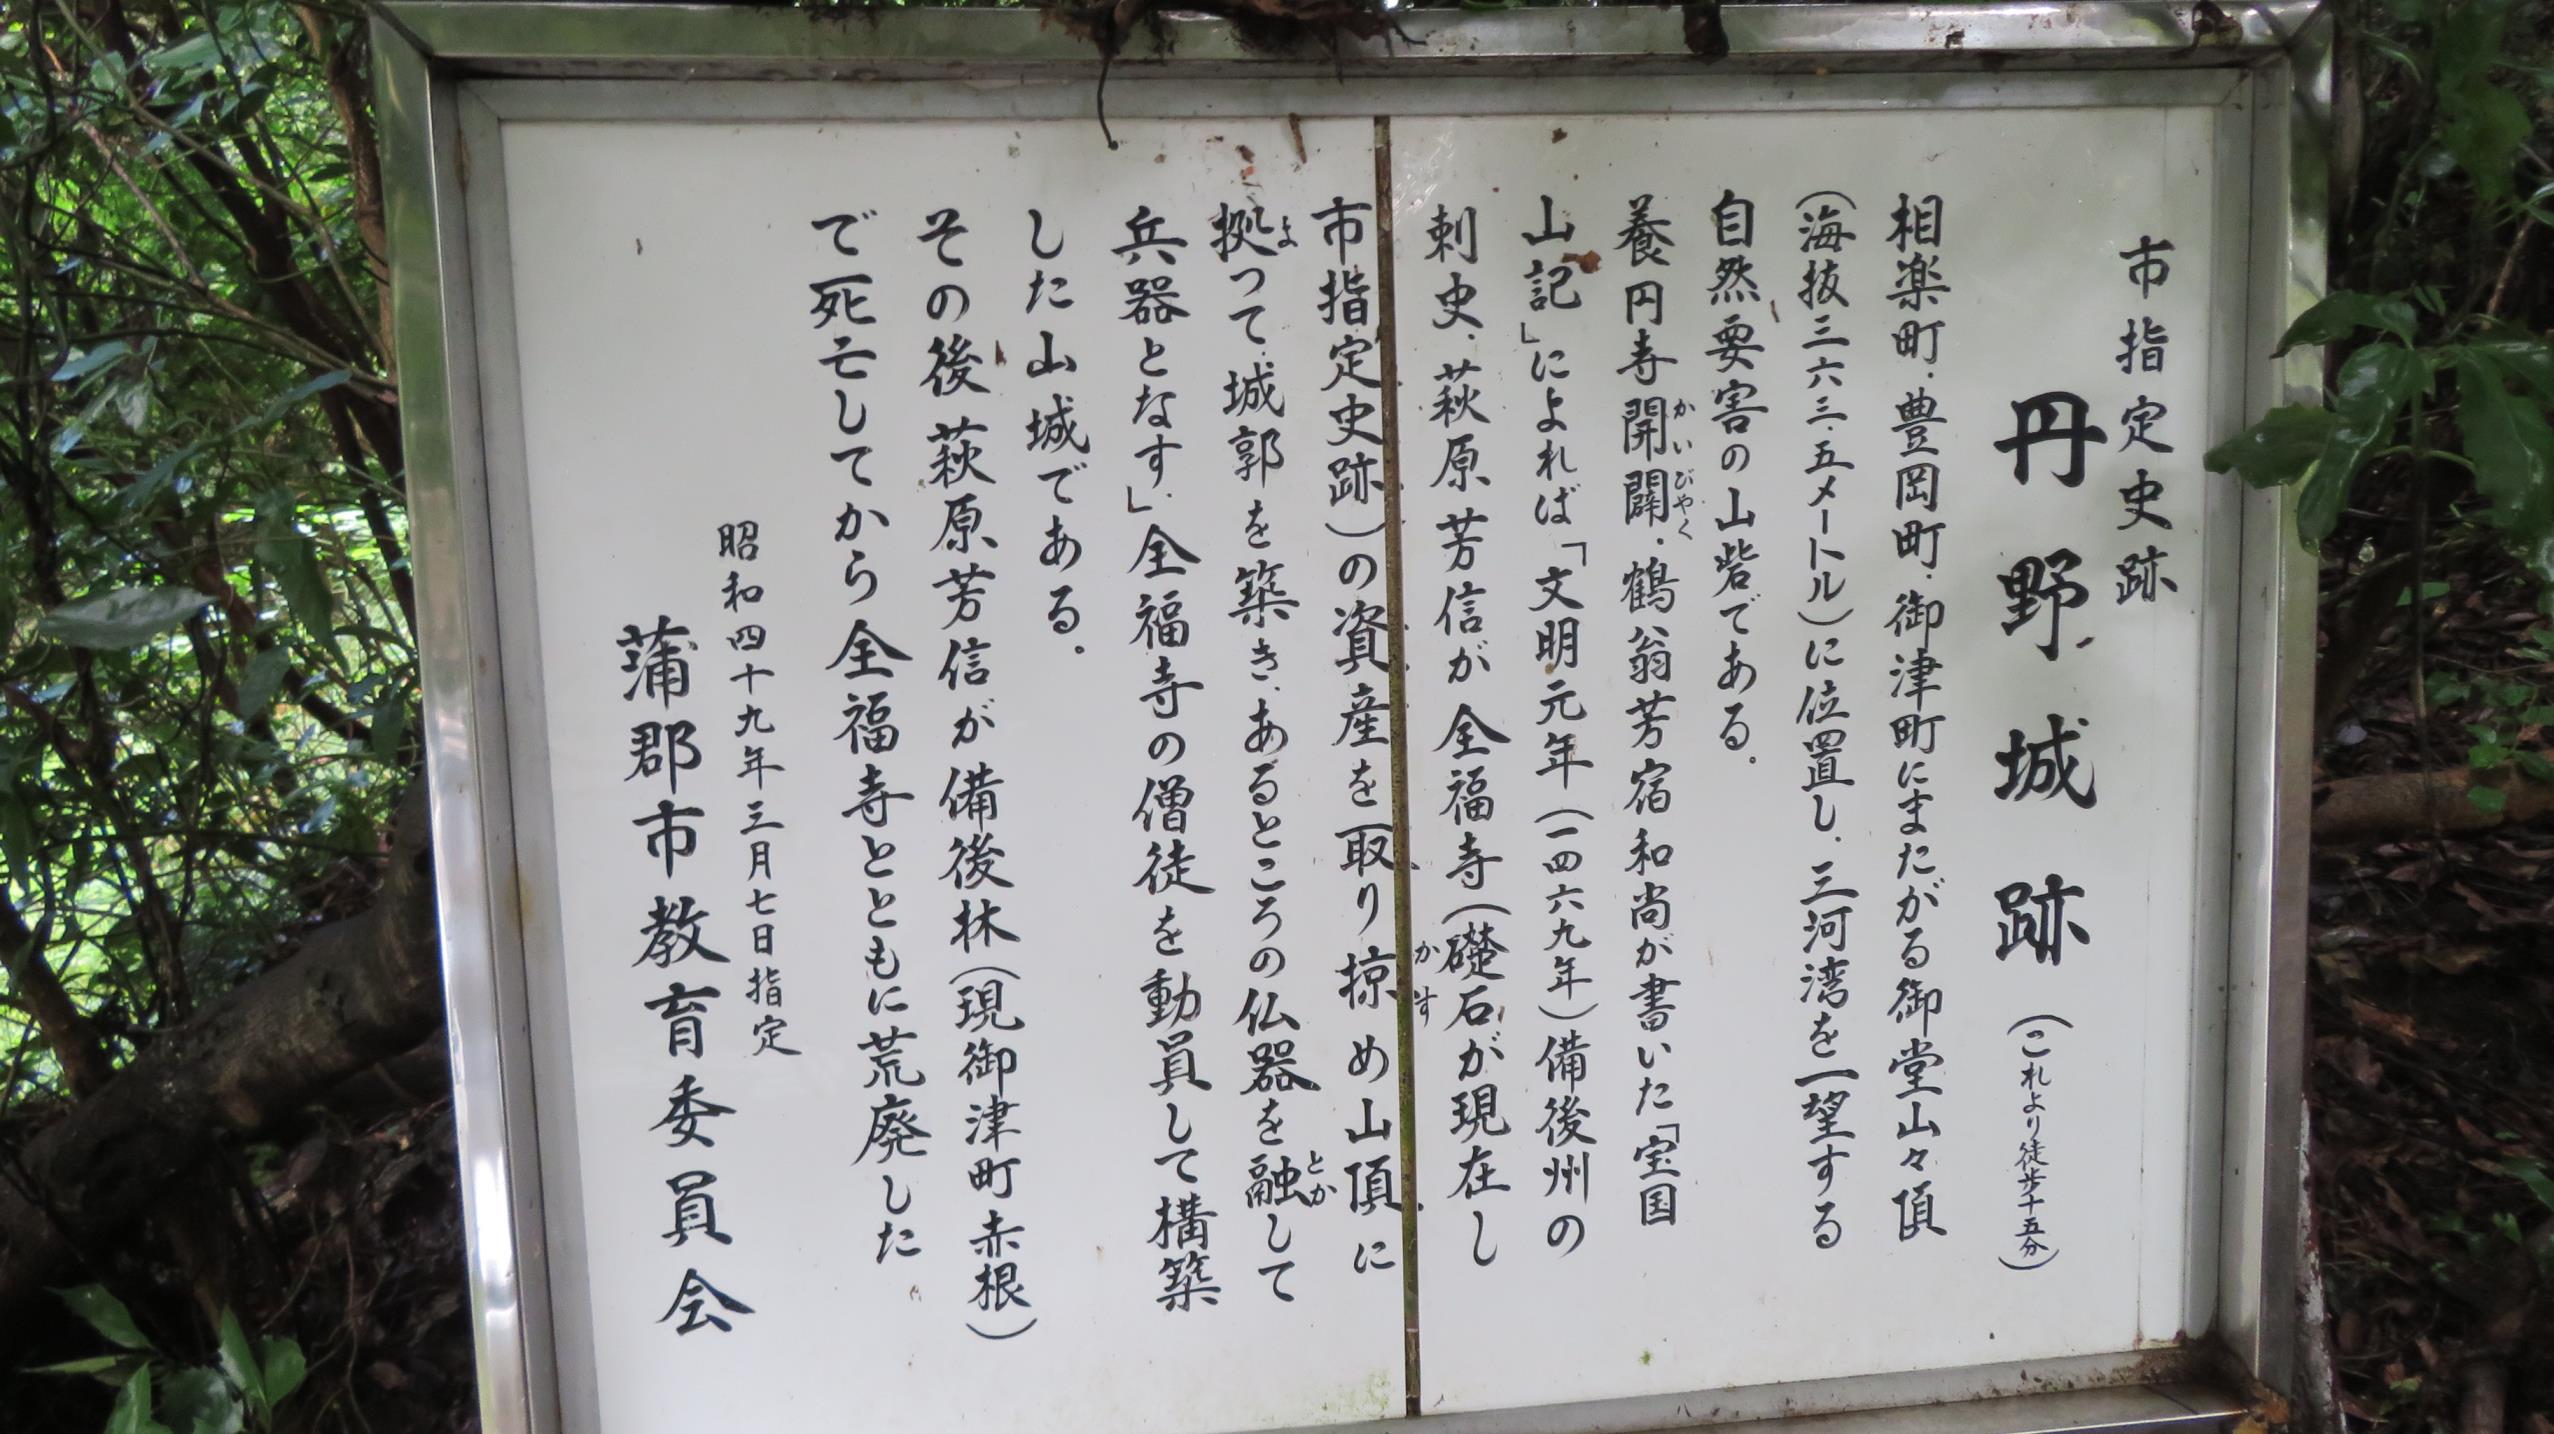 市指定史跡
丹野城跡(これより徒歩十五分)
相楽町・豊岡町・御津町にまたがる御堂山々頂
(海抜三六三・五メートル)に位置し、三河湾を一望する
自然要害の山砦である。
養円寺開闢・鶴翁芳宿和尚が書いた「宝国
かいびやく
山記」によれば「文明元年(一四六九年)備後州の
刺史、萩原芳信が全福寺(礎石が現在し
市指定史跡)の資産を取り掠め山頂に
かす
拠って、城郭を築き、あるところの仏器を融して
よ
とか
兵器となす」全福寺の僧徒を動員して構築
した山城である。
その後萩原芳信が備後林(現御津町赤根)
で死亡してから全福寺とともに荒廃した
昭和四十九年三月七日指定
蒲郡市教育委員会